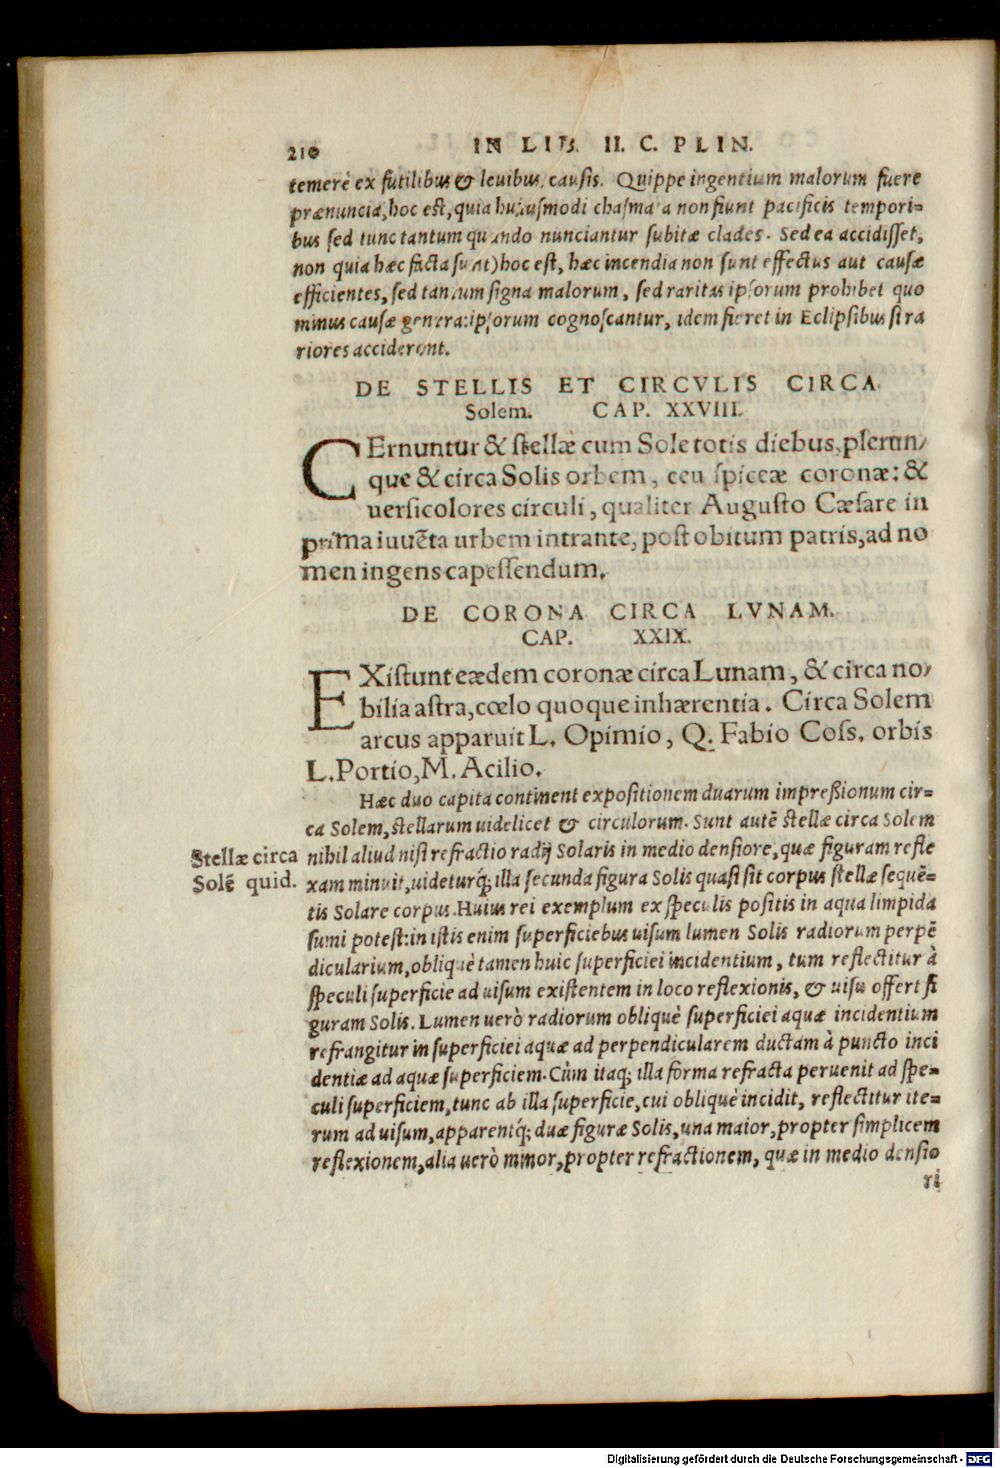 210 IN LIB. II. C. PLIN.
temerè ex futilibus & leuibus, causis. Quippe ingentium malorum fuere
prænuncia, hoc est, quia huiusmodi chasmata non fiunt pacificis tempori=
bus sed tunc tantum quando nunciantur subitæ clades. Sed ea accidisset,
non quia hæc facta sunt) hoc est, hæc incendia non sunt effectus aut causæ
efficientes, sed tantum signa malorum, sed raritas ipsorum prohibet quo
minus causæ genera: ipsorum cognoscantur, idem fieret in Eclipsibus si ra
riores acciderent.
DE STELLIS ET CIRCVLIS CIRCA
Solem. CAP. XXVIII.
CErnuntur & stellæ cum Sole totis diebus, plerun/
que & circa Solis orbem, ceu spiceæ coronæ: &
uersicolores circuli, qualiter Augusto Cæsare in
prima iuuēta urbem intrante, post obitum patris, ad no
men ingens capessendum.
DE CORONA CIRCA LVNAM.
CAP. XXIX.
EXistunt eædem coronæ circa Lunam, & circa no/
bilia astra, cœlo quoque inhærentia. Circa Solem
arcus apparuit L. Opimio, Q. Fabio Coss. orbis
L. Portio, M. Acilio.
Hæc duo capita continent expositionem duarum impreßionum cir=
ca Solem, stellarum uidelicet & circulorum. Sunt autē stellæ circa Solem
Stellæ circa
Solē quid.
nihil aliud nisi refractio radij Solaris in medio densiore, quæ figuram refle
xam minuit, uideturq́; illa secunda figura Solis quasi sit corpus stellæ sequē=
tis Solare corpus. Huius rei exemplum ex speculis positis in aqua limpida
sumi potest: in istis enim superficiebus uisum lumen Solis radiorum perpē
dicularium, obliquè tamen huic superficiei incidentium, tum reflectitur à
speculi superficie ad uisum existentem in loco reflexionis, & uisu offert fi
guram Solis. Lumen uerò radiorum obliquè superficiei aquæ incidentium
refrangitur in superficiei aquæ ad perpendicularem ductam à puncto inci
dentiæ ad aquæ superficiem. Cùm itaq; illa forma refracta peruenit ad spe=
culi superficiem, tunc ab illa superficie, cui obliquè incidit, reflectitur ite=
rum ad uisum, apparentq́; duæ figuræ Solis, una maior, propter simplicem
reflexionem, alia uerò minor, propter refractionem, quæ in medio densio
ri
Digitalisierung gefördert durch die Deutsche Forschungsgemeinschaft - DFG